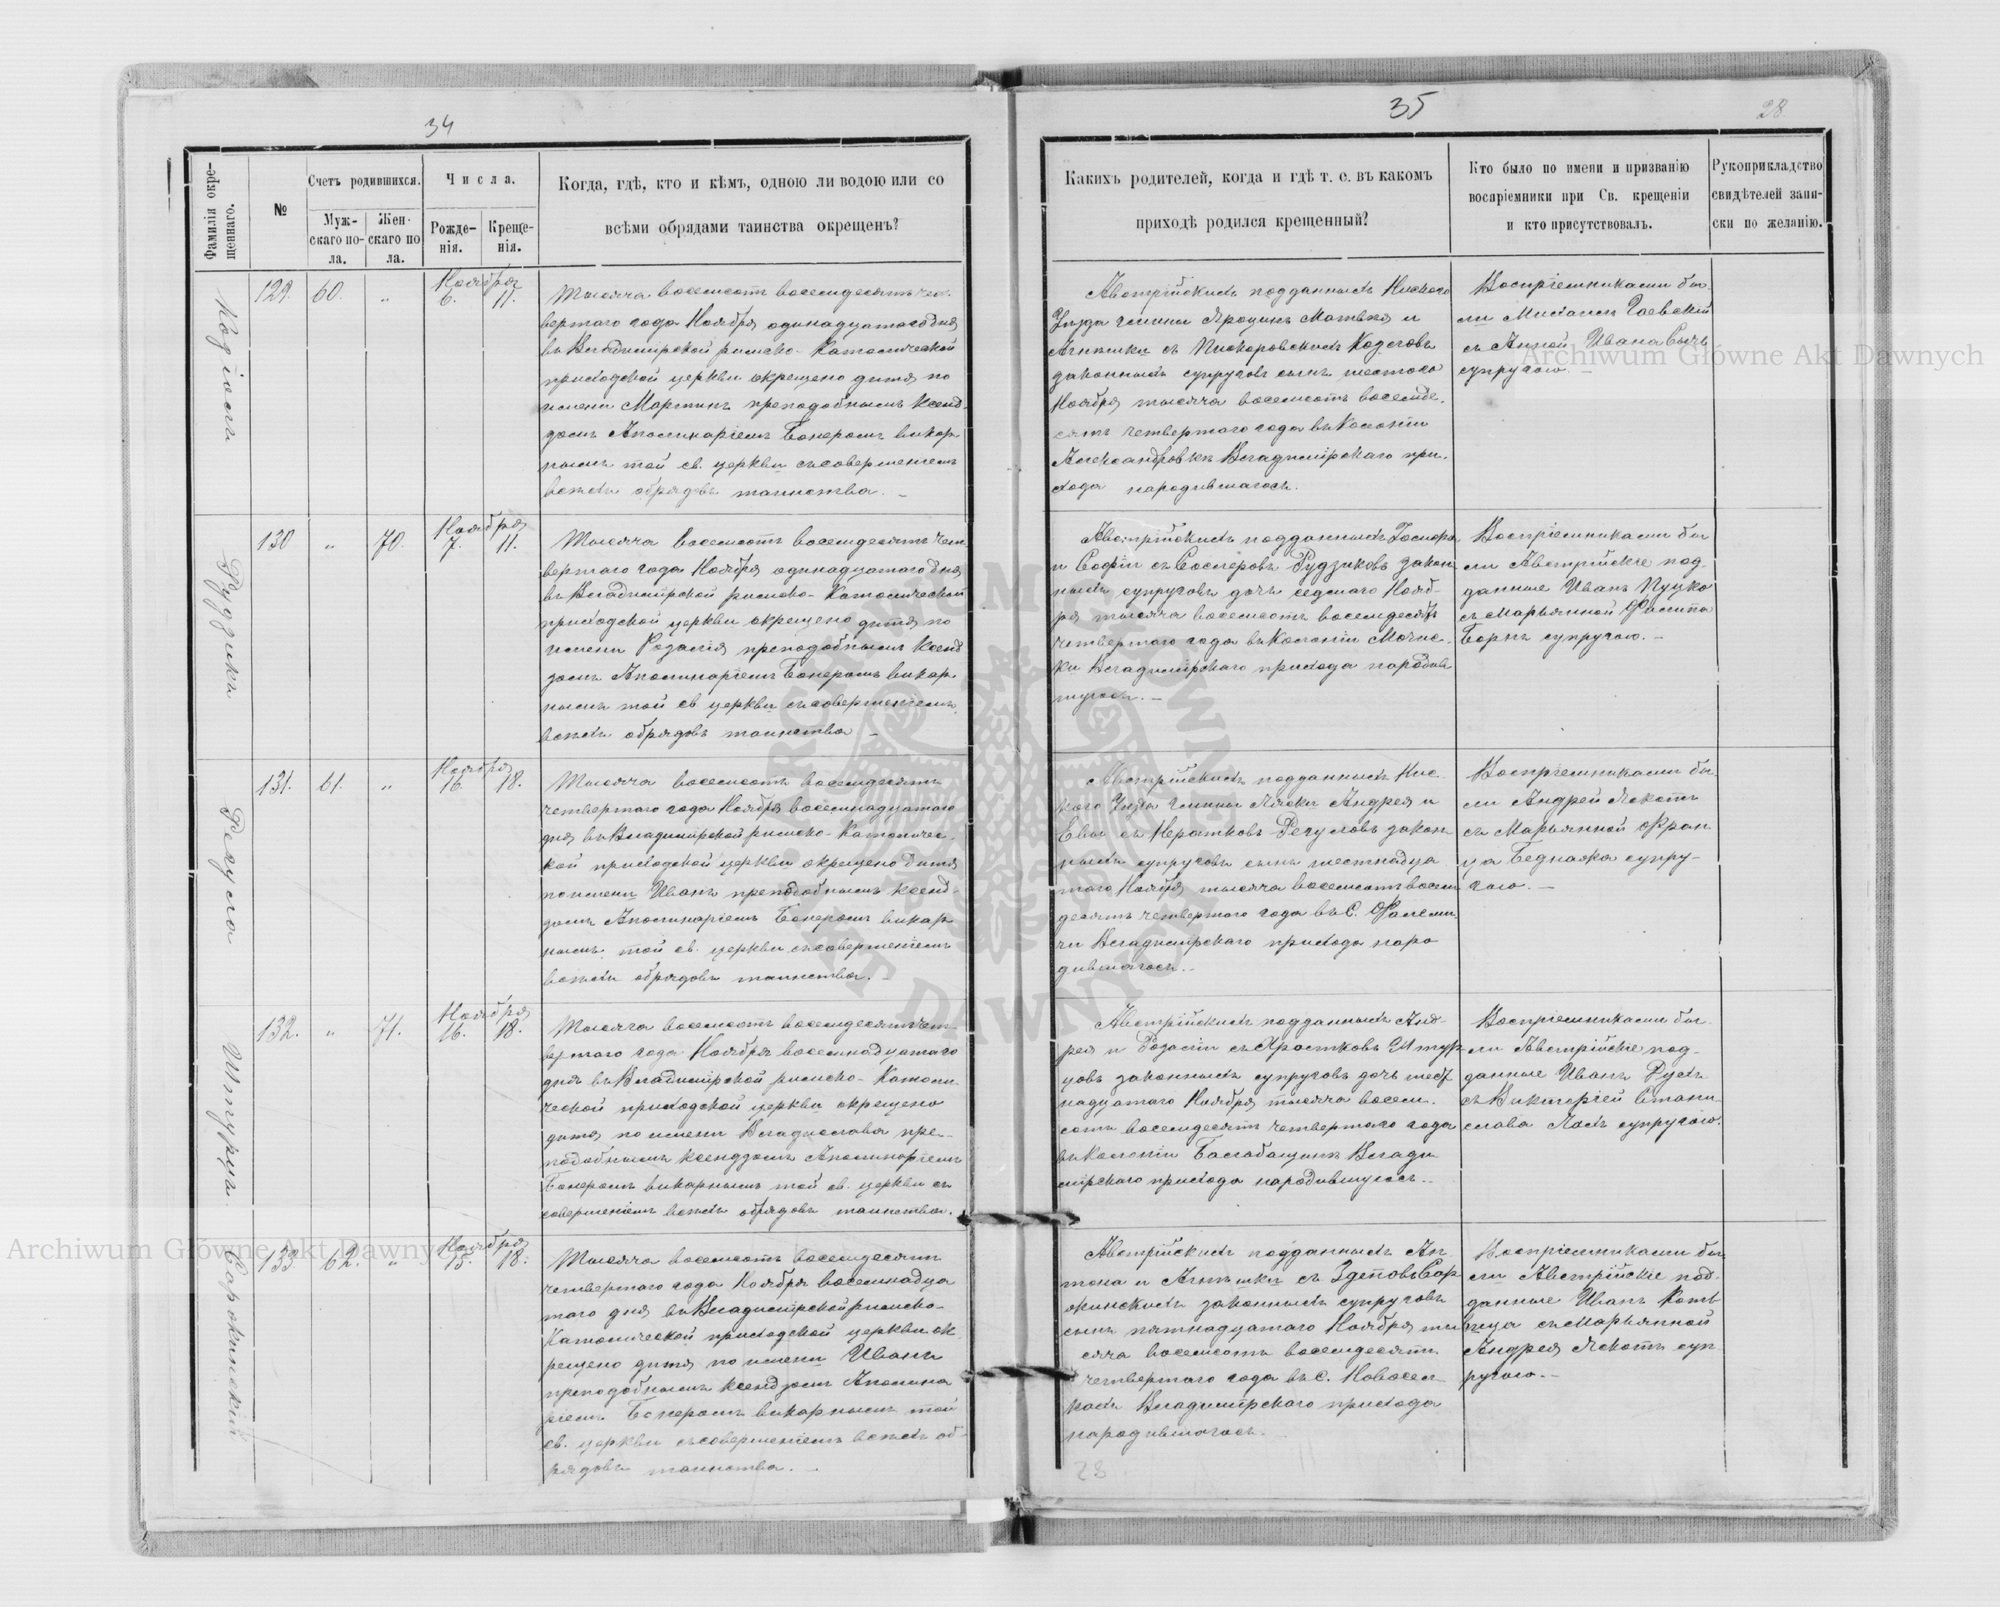 34
Фамилія окре-
щеннаго.
№
Счетъ родившихся.
Муж-
скаго по-
ла.
Жен-
скаго по
ла.
Числа.
Рожде-
нія.
Креще-
нія.
Когда, гдѣ, кто и кѣмъ, одною ли водою или со
всѣми обрядами таинства окрещенъ?
129. 60. „ Ноября 6. 11.
Тысяча восемсотъ восемдесятъ чет-
вертаго года Ноября одинадцатаго дня
въ Владимірской римско-Католической
приходской церкви окрещено дитя по
имени Мартинъ преподобнымъ Ксенд-
зомъ Аполинаріемъ Бонеромъ викар
нымъ той св. церкви съ совершеніемъ
всѣхъ обрядовъ таинства. –
Рудзикъ
130 „ 70. Ноября 7. 11.
Тысяча восемсотъ восемдесятъ чет
вертаго года Ноября одинадцатаго дня
въ Владимірской римско-Католической
приходской церкви окрещено дитя по
имени Розалія преподобнымъ Ксенд
зомъ Аполинаріемъ Бонеромъ викар
нымъ той св церкви съ совершеніемъ
всѣхъ обрядовъ таинства –
Регула
131. 61. „ Ноября 16. 18.
Тысяча восемсотъ восемдесятъ
четвертаго года Ноября восемнадцатаго
дня въ Владимірской римско-Католичес-
кой приходской церкви окрещено дитя
по имени Иванъ преподобнымъ ксенд-
зомъ Аполинаріемъ Бонеромъ викар
нымъ той св. церкви съ совершеніемъ
всѣхъ обрядовъ таинства. –
Штурцъ
132. „ 71. Ноября 16. 18.
Тысяча восемсотъ восемдесятъ чет-
вертаго года Ноября восемнадцатаго
дня въ Владимірской римско-Католи
ческой приходской церкви окрещено
дитя по имени Владислава пре-
подобнымъ ксендзомъ Аполинаріемъ
Бонеромъ викарнымъ той св. церкви съ
совершеніемъ всѣхъ обрядовъ таинства.
133 62. „ Ноября 15. 18.
Тысяча восемсотъ восемдесятъ
четвертаго года Ноября восемнадца
таго дня въ Владимірской римско-
Католической приходской церкви ок
рещено дитя по имени Иванъ
преподобнымъ ксендзомъ Аполина
ріемъ Бонеромъ викарнымъ той
св. церкви съ совершеніемъ всѣхъ об-
рядовъ таинства. –
35
28
Какихъ родителей, когда и гдѣ т. е. въ какомъ
приходѣ родился крещенный?
Кто было по имени и призванію
воспріемники при Св. крещеніи
и кто присутствовалъ.
Рукоприкладство
свидѣтелей запи-
ски по желанію.
Австрійскихъ подданныхъ Ниского
Уѣзда гмины Яроцинъ Матвѣя и
Агнешки съ
законныхъ супруговъ сынъ шестого
Ноября тысяча восемсотъ восемде-
сятъ четвертаго года въ Колоніи
Александровкѣ Владимірскаго при-
хода народившагося.
Воспріемниками бы-
ли Михаилъ Гаевскій
съ Анной Ивана
супругою. –
Австрійскихъ подданныхъ
и Софіи съ Рудзиковъ закон
ныхъ супруговъ дочь седмаго Нояб-
ря тысяча восемсотъ восемдесятъ
четвертаго года въ Колоніи
Владимірскаго прихода народив
шуюся. –
Воспріемниками бы
ли Австрійскіе под-
данные Иванъ
съ Марьянной Филипа
супругою. –
Австрійскихъ подданныхъ Нис-
кого Уѣзда гмины Андрея и
Евы съ Регуловъ закон
ныхъ супруговъ сынъ шестнадца
таго Ноября тысяча восемсотъ восем
десятъ четвертаго года въ С. Фалеми
чи Владимірскаго прихода наро
дившагося. –
Воспріемниками бы-
ли Андрей
съ Марьянной Фран
ца супру-
гою. –
Австрійскихъ подданныхъ Анд-
рея и Розаліи съ Штур
цовъ законныхъ супруговъ дочь шест
надцатаго Ноября тысяча восем-
сотъ восемдесятъ четвертаго года
въ Колоніи Влади
мірскаго прихода народившуюся.
Воспріемниками бы-
ли Австрійскіе под-
данные Иванъ
съ Викторіей Стани
слава супругою.
Австрійскихъ подданныхъ Ан-
тона и Агнешки съ
законныхъ супруговъ
сынъ пятнадцатаго Ноября ты
сяча восемсотъ восемдесятъ
четвертаго года въ с. Новосел
кахъ Владимірскаго прихода
народившагося.
Воспріемниками бы
ли Австрійскіе под-
данные Иванъ
съ Марьянной
Андрея суп
ругою. –
28
Archiwum Główne Akt Dawnych
Archiwum Główne Akt Dawnych